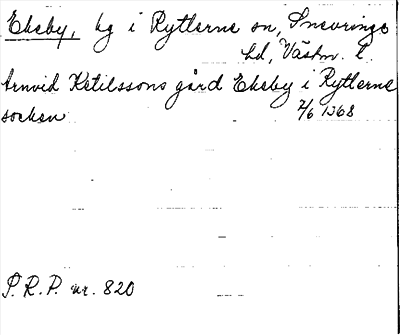 Ekeby, hg i Rytterne sn, Snevringe
hd, Västm. l.
Arnvid Ketilssons gård Ekeby i Rytterne
socken 2/6 1368
S.R.P. nr. 820